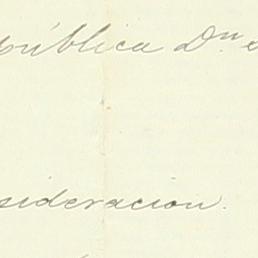 pública Dn
sideracion.